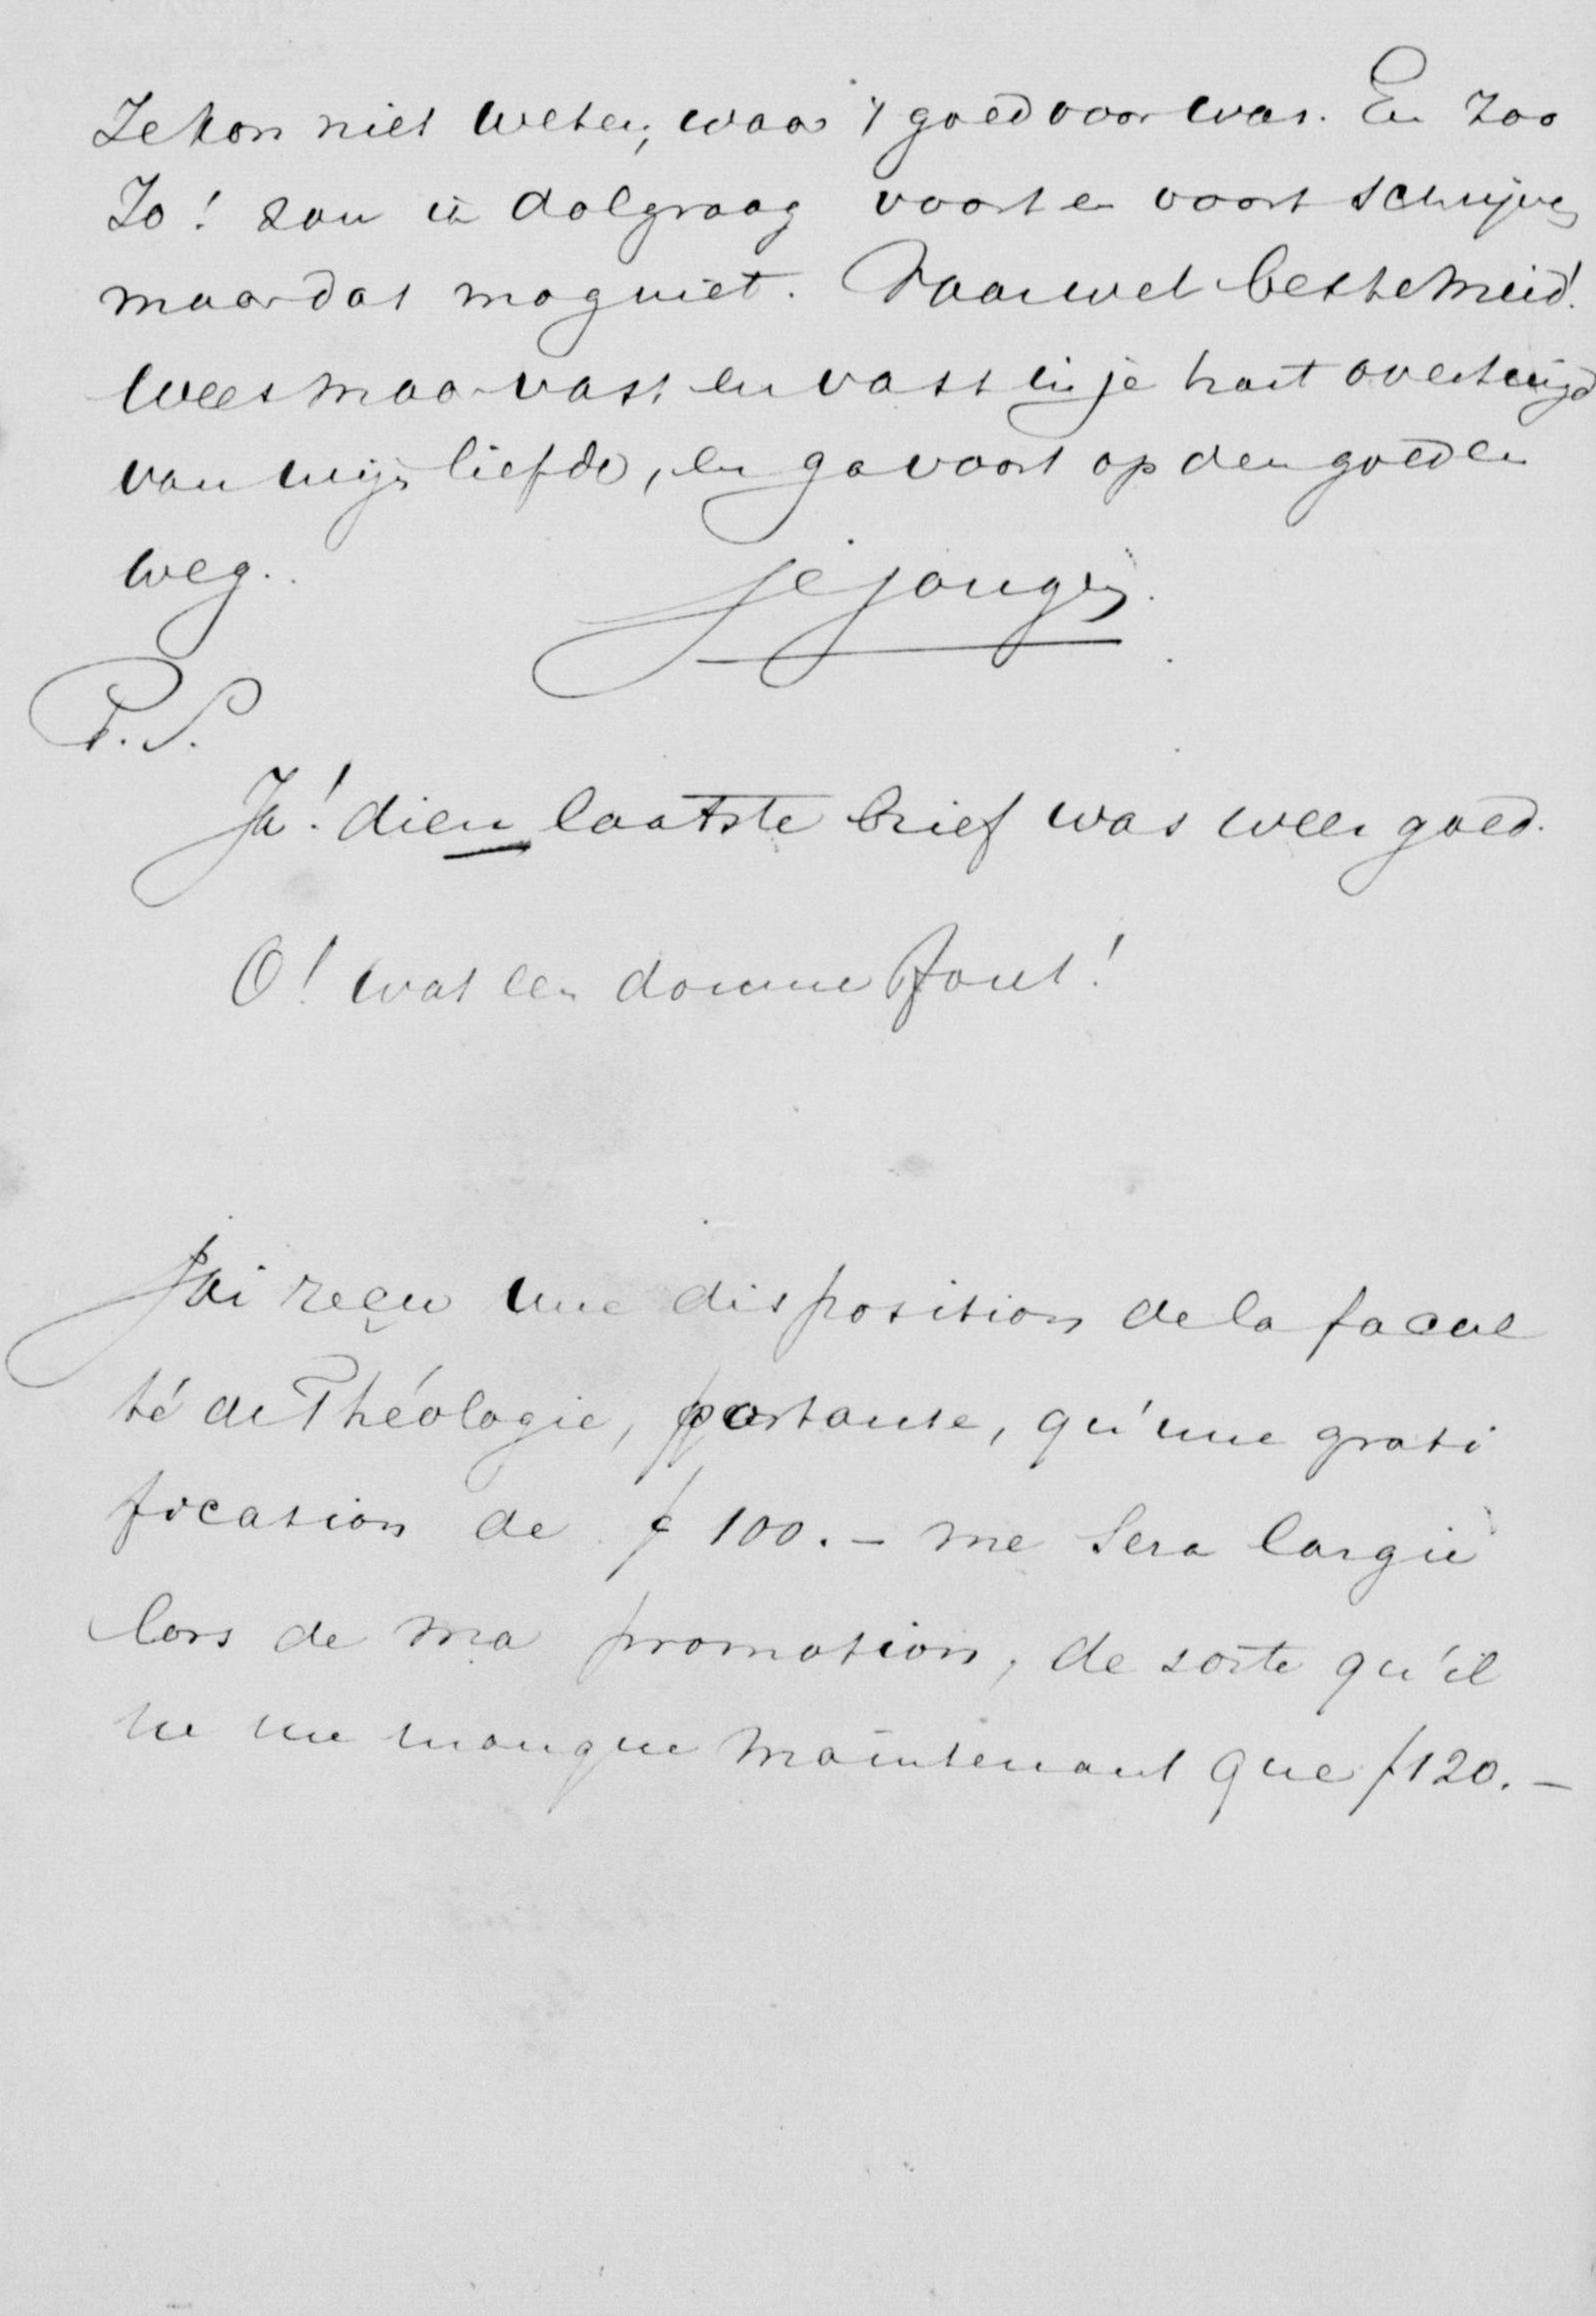 Ze kon niet weten, waar 't goed voor was. En zoo
Jo! zou ik dolgraag voort en voort schrijven
maar dat mag niet. Vaarwel beste meid!
Wees maar vast en vast in je hart overtuigd
van mijn liefde, en ga voort op den goeden
weg.
je jongen.
P.S.
Ja! dien laatste brief was weer goed.
O! wat een domme fout!
J'ai reçu une disposition de la facul
té de Théologie, portante, qu'une grati
fication de ƒ 100.- me sera largie
lors de ma promotion, de sorte qu'il
ne me manque maintenant que ƒ120.-